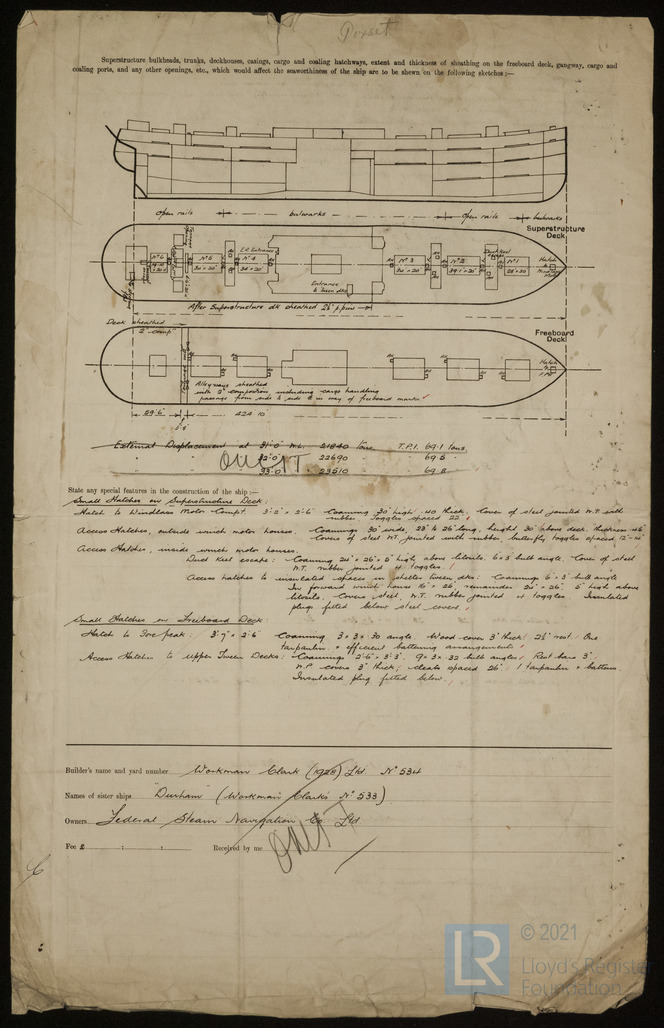 Dorset
Superstructure bulkheads, trunks, deckhouses, casings, cargo and coaling hatchways, extent and thickness of sheathing on the freeboard deck, gangway, cargo and
coaling ports, and any other openings, etc., which would affect the seaworthiness of the ship are to be shewn on the following sketches :—
open rails bulwarks open rails bulwarks
Superstructure
Deck
E.R. Entrance
Nº 6 Nº 5 Nº 4 Nº 3 Nº 2 Nº 1
Hatch
to
Entrance
to Tween dks
After Superstructure dk sheathed 2½" p. pine
Deck sheathed
2" compn
Freeboard
Deck
Hatch
to
F.PK.
Alleyways sheathed
with 2" composition, including cargo handling
passage from side to side & in way of freeboard marks
29'.6" 424'.10"
External Displacement at 31'-0" W.L. 21840 Tons T.P.I. 69.1 tons
32'.0" 22690 69.5
33.0" 23510 69.8
OMIT
State any special features in the construction of the ship :—
Small Hatches on Superstructure Deck:
Hatch to Windlass Motor Compt. 3'.2" × 2'.6" Coaming 30" high .40 thick. Cover of steel jointed W.T. with
rubber. Toggles spaced 22"
Access Hatches, outside winch motor houses. Coamings 30" wide, 23" to 26" long, height 30" above deck thickness .46
Covers of steel W.T. jointed with rubber, butterfly toggles spaced
Access Hatches, inside winch motor houses.
Duct Keel escape: Coaming 24" × 26" × 5" high, above litosilo. 6 × 3 bulb angle. Cover of steel
W.T. rubber jointed & toggles.
Access hatches to insulated spaces in shelter tween dks: Coamings 6" × 3" bulb angle
In forward winch house 16" × 26", remainder 24" × 26", 5" high above
litosilo. Covers steel, W.T. rubber jointed & toggles. Insulated
plugs fitted below steel covers.
Small Hatches on Freeboard Deck:
Hatch to Fore peak: 3'.7" × 2'.6" Coaming 3 × 3 × .30 angle. Wood cover 3" thick. 2½" rest. One
tarpaulin & efficient battening arrangements
Access Hatches to upper Tween Decks: Coamings 2'.6" × 3'.3". 9 × 3 × .32 bulb angles. Rest bars 3".
W.P. covers 3" thick; cleats spaced 26". 1 tarpaulin & battens.
Insulated plug fitted below.
Builder's name and yard number Workman Clark (1928) Ltd. Nº 534
Names of sister ships "Durham" (Workman Clark's Nº 533)
Owners Federal Steam Navigation Co. Ltd
Fee £ : : Received by me
OMIT
LR
© 2021
Lloyd's Register
Foundation